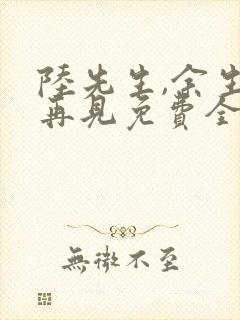 陸先生,余生
再見免費全
無微不至